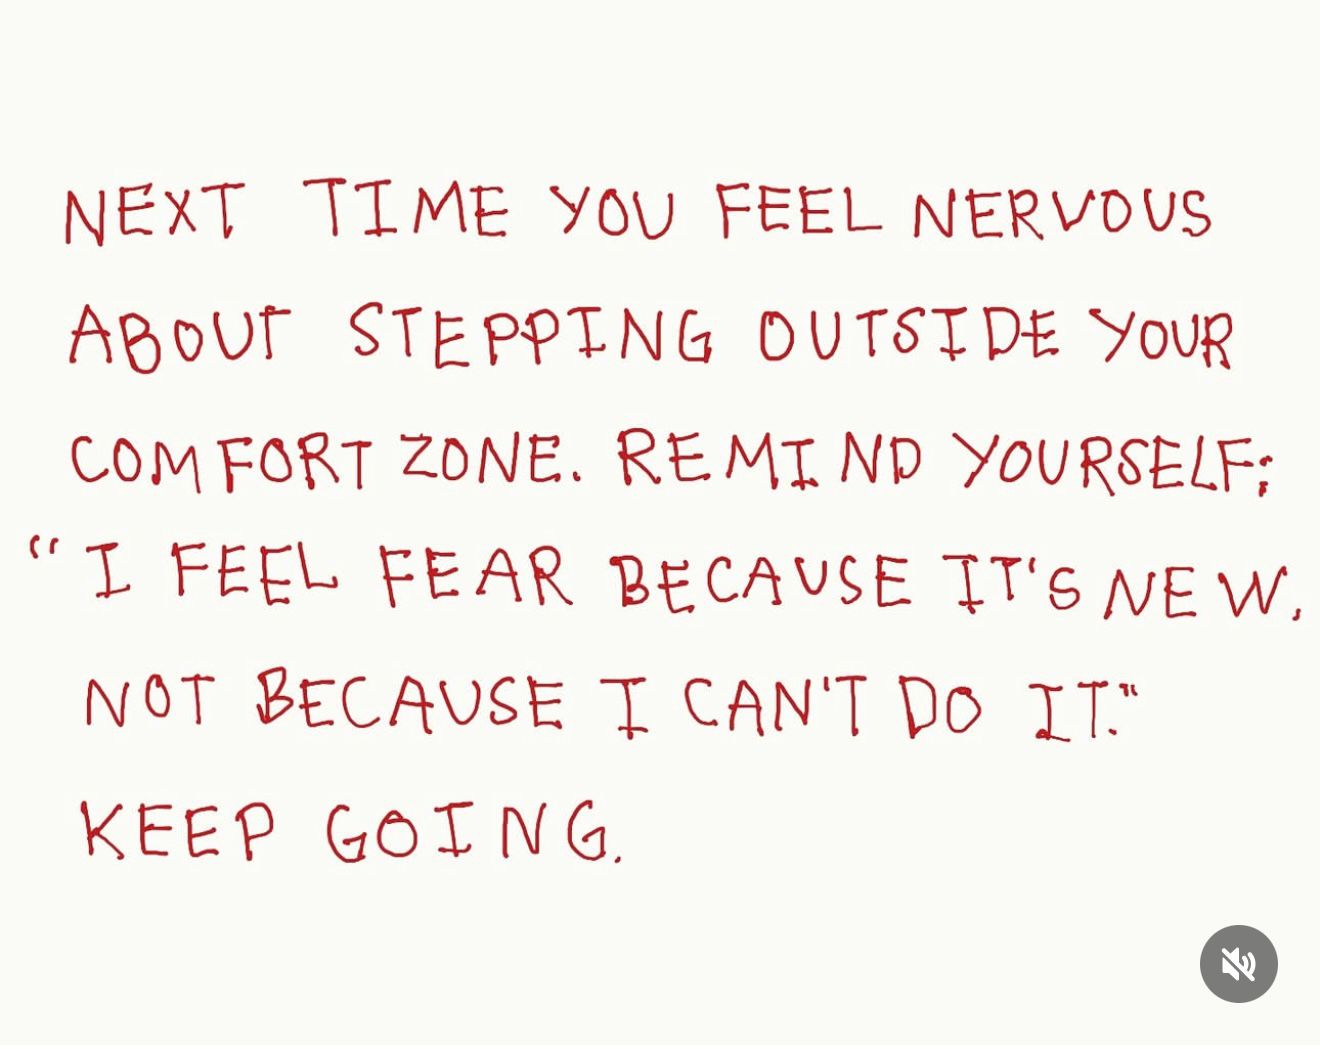 NEXT TIME YOU FEEL NERVOUS
ABOUT STEPPING OUTSIDE YOUR
COMFORT ZONE. REMIND YOURSELF:
"I FEEL FEAR BECAUSE IT'S NEW,
NOT BECAUSE I CAN'T DO IT."
KEEP GOING.